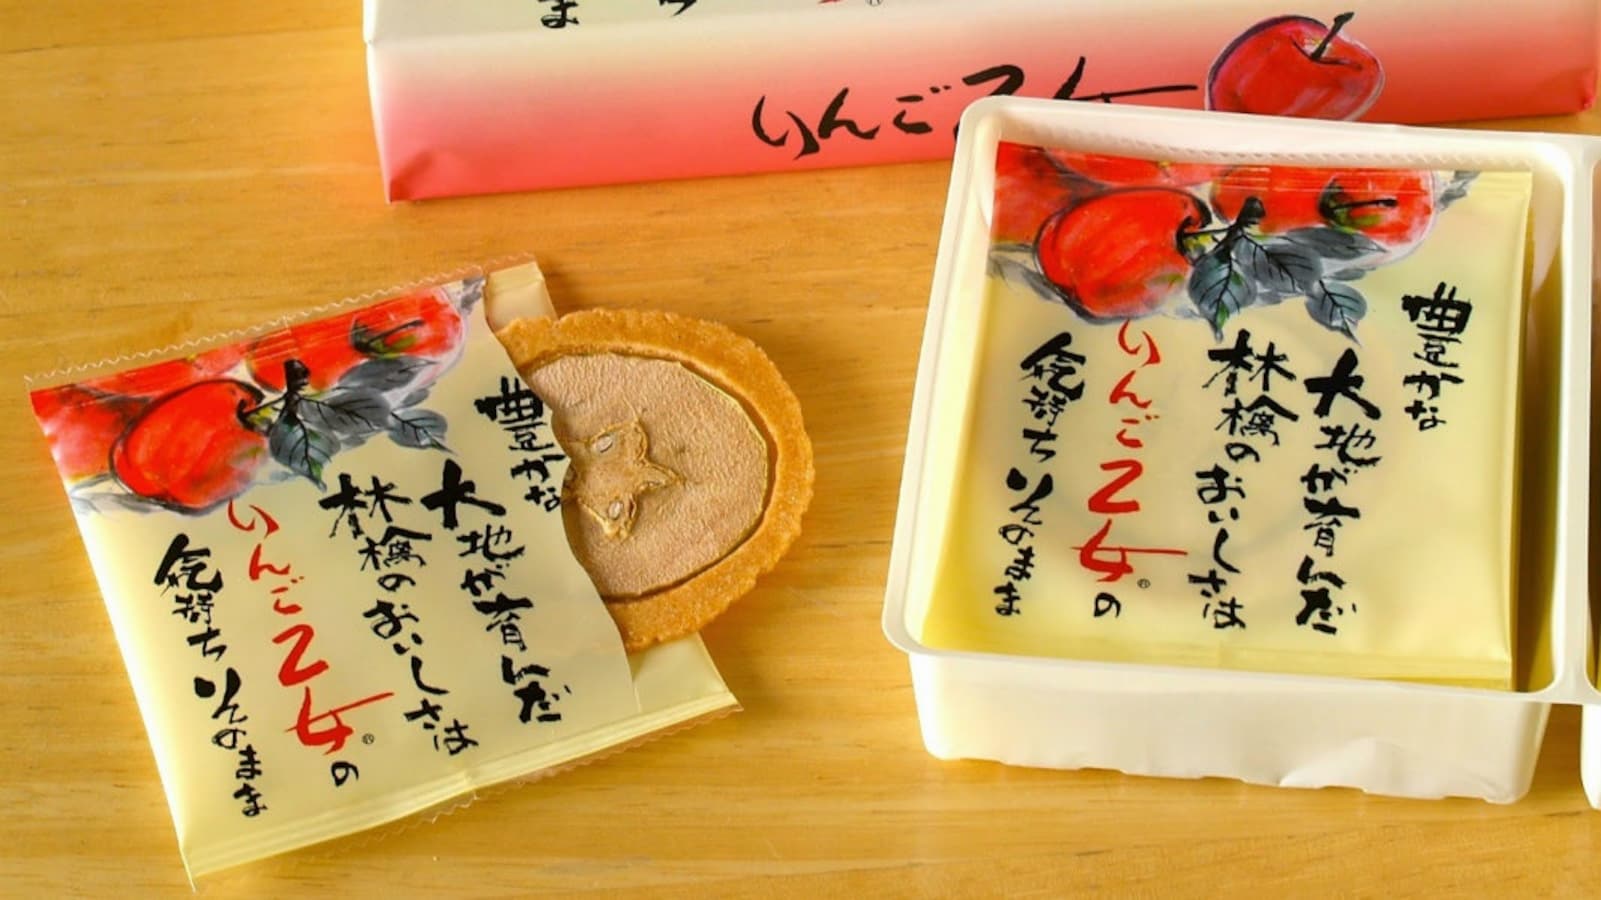 ま
®
りんご乙女
豊かな
大地が育んだ
林檎のおいしさは
りんご乙女®の
気持ちそのまま
豊かな
大地が育んだ
林檎のおいしさは
りんご乙女®の
気持ちそのまま